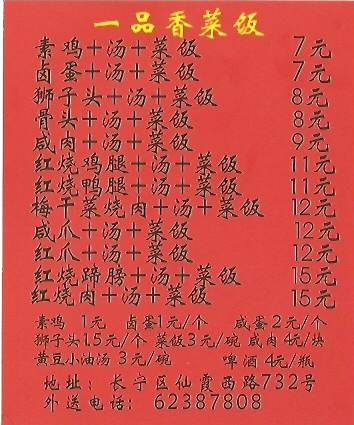 一品香菜饭
素鸡+汤+菜饭 7元
卤蛋+汤+菜饭 7元
狮子头+汤+菜饭 8元
骨头+汤+菜饭 8元
咸肉+汤+菜饭 9元
红烧鸡腿+汤+菜饭 11元
红烧鸭腿+汤+菜饭 11元
梅干菜烧肉+汤+菜饭 12元
咸爪+汤+菜饭 12元
红爪+汤+菜饭 12元
红烧蹄膀+汤+菜饭 15元
红烧肉+汤+菜饭 15元
素鸡 1元 卤蛋1元/个 咸蛋2元/个
狮子头1.5元/个 菜饭3元/碗 咸肉4元/块
黄豆小油汤 3元/碗 啤酒4元/瓶
地址：长宁区仙霞西路732号
外送电话：62387808